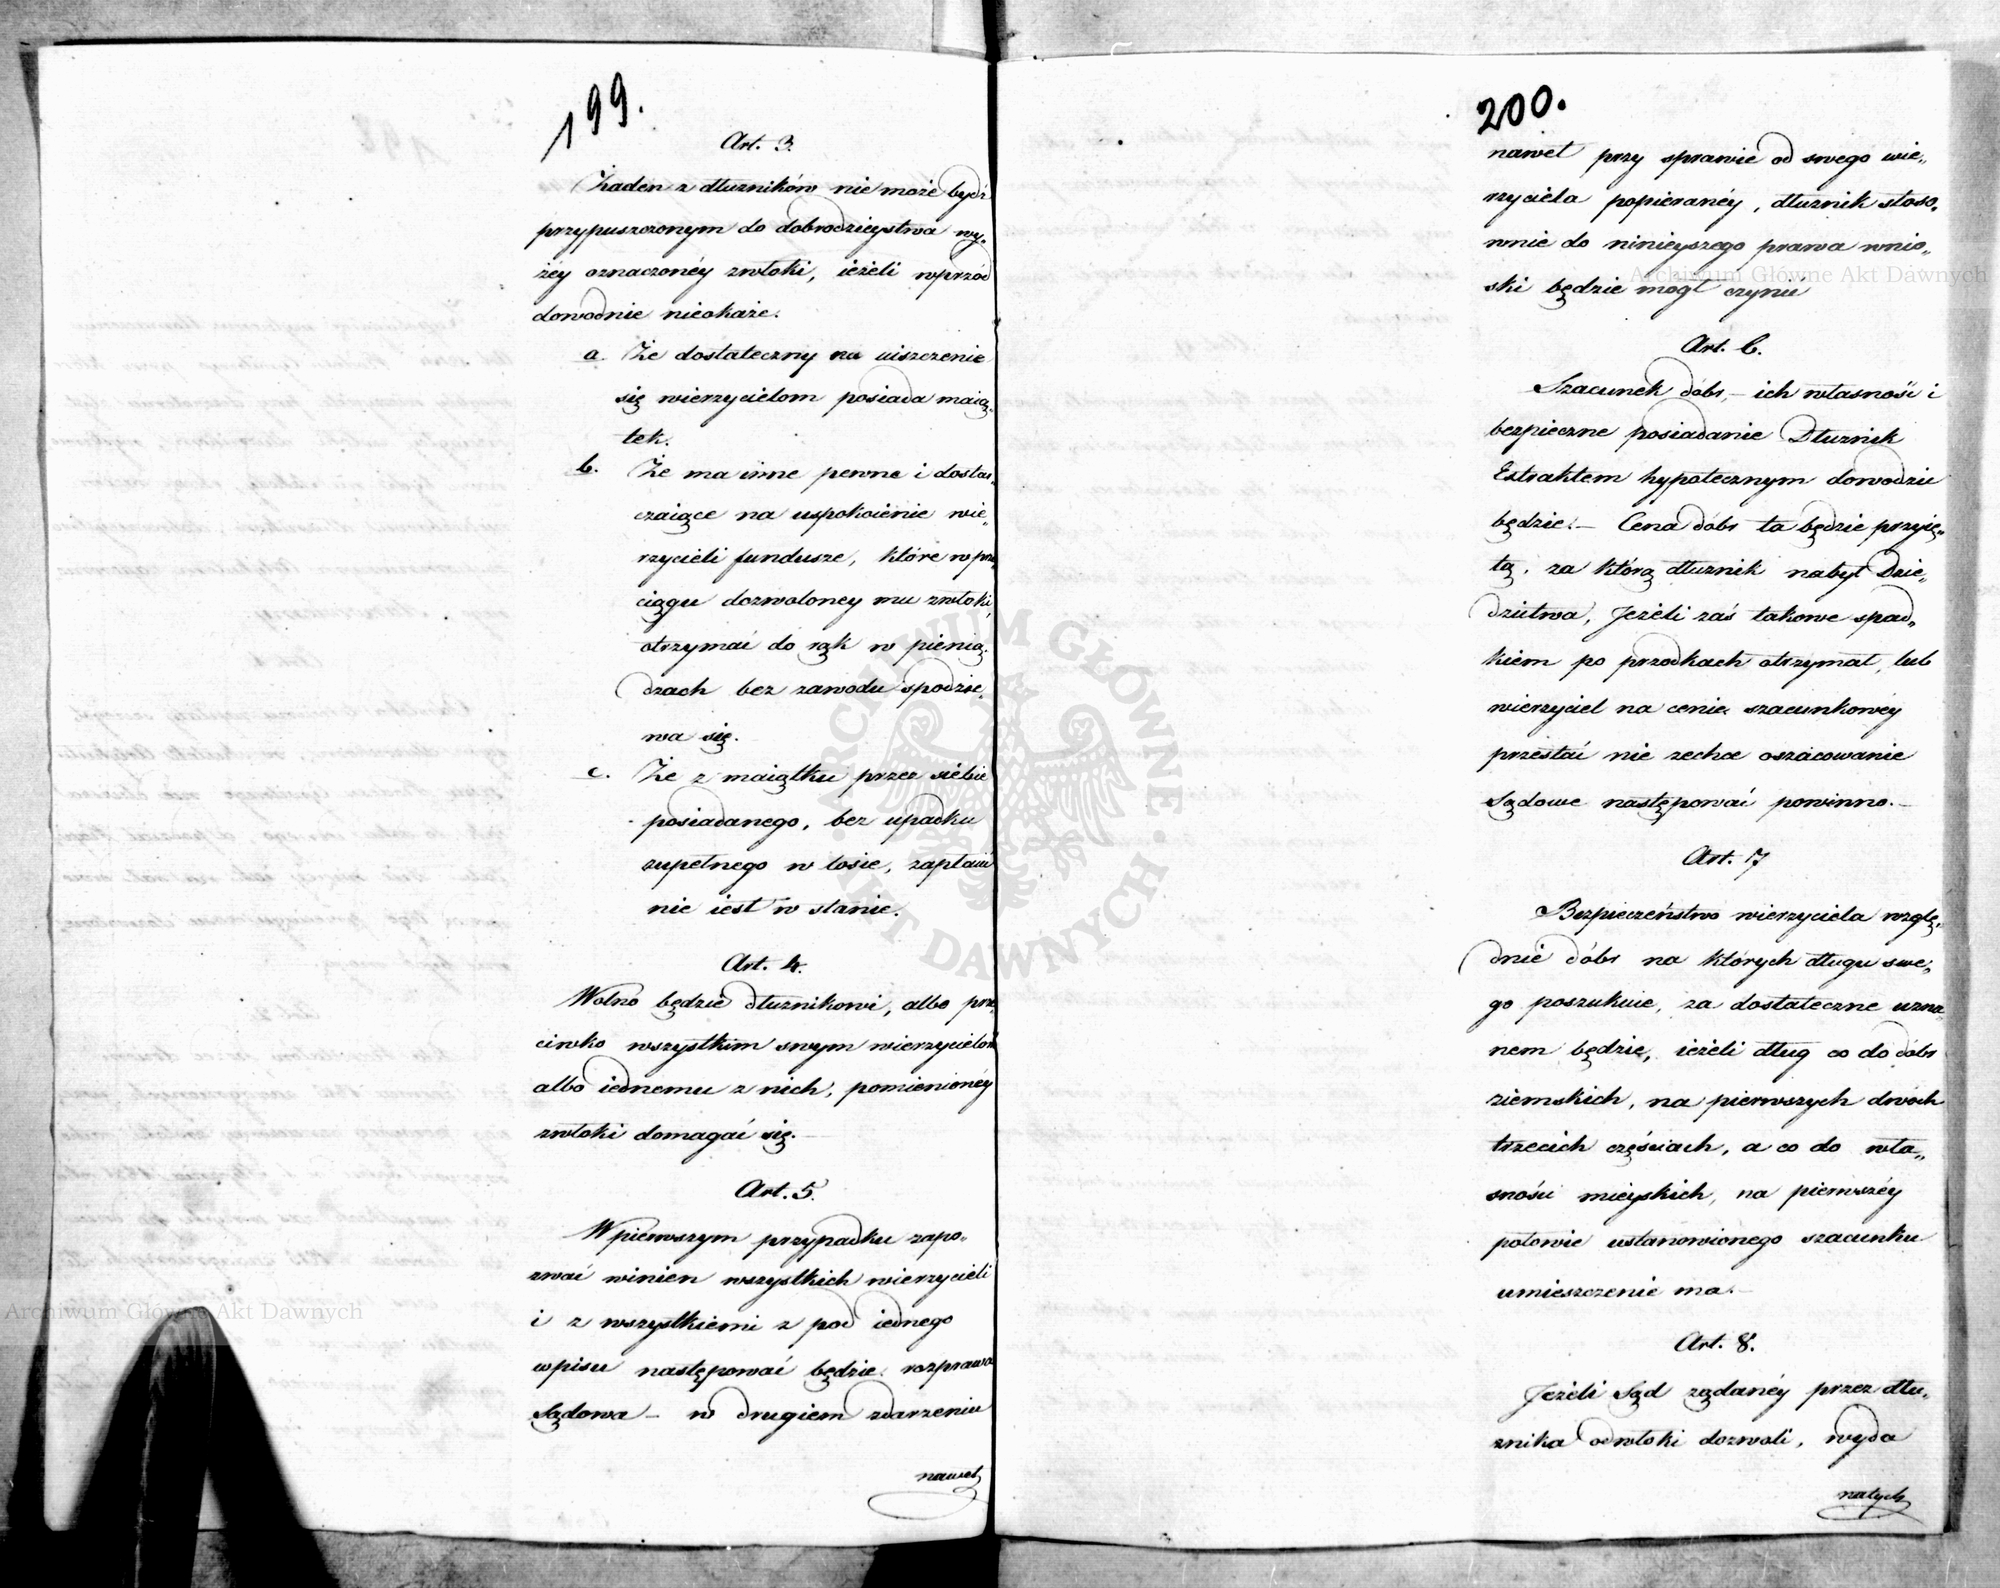 199.
Art. 3.
Żaden z dłużników nie może bydź
przypuszczonym do dobrodzieystwa wy„
żéy oznaczonéy zwłoki, ieżeli wprzód
dowodnie nieokaże.
a. Że dostateczny na uiszczenie
się wierzycielom posiada maią„
tek.
b. Że ma inne pewne i dostar„
czaiące na uspokoienie wie„
rzycieli fundusze, które w prze„
ciągu dozwoloney mu zwłoki,
otrzymać do rąk w pienią„
dzach bez zawodu spodzie„
wa się.
c. Że z maiątku przez siebie
posiadanego, bez upadku
zupełnego w losie, zapłacić
nie iest w stanie.
Art. 4.
Wolno będzie dłużnikowi, albo prze„
ciwko wszystkim swym wierzycielom
albo iednemu z nich, pomienionéy
zwłoki domagać się.—
Art. 5.
W pierwszym przypadku zapo„
zwać winien wszystkich wierzycieli
i z wszystkiemi z pod iednego
wpisu następować będzie rozprawa
Sądowa — w drugiem zdarzeniu
nawet
200.
nawet przy sprawie od swego wie„
rzyciela popieranéy, dłużnik stoso„
wnie do ninieyszego prawa wnio„
ski będzie mógł czynić
Art. 6.
Szacunek dóbr, — ich własność i
bezpieczne posiadanie Dłużnik
Extraktem hypotecznym dowodzić
będzie. — Cena dóbr ta będzie przyię„
tą, za którą dłużnik nabył Dzie„
dzictwa, Jeżeli zaś takowe spad„
kiem po przodkach otrzymał, lub
wierzyciel na cenie szacunkowéy
przestać nie zechce oszacowanie
Sądowe następować powinno.—
Art. 7
Bezpieczeństwo wierzyciela wzglę„
dnie dóbr na których długu swe„
go poszukuie, za dostateczne uzna„
nem będzie, ieżeli dług co do dóbr
ziemskich, na pierwszych dwóch
trzecich częściach, a co do wła„
sności mieyskich, na pierwszéy
połowie ustanowionego szacunku
umieszczenie ma.—
Art. 8.
Jeżeli Sąd żądanéy przez dłu„
żnika odwłoki dozwoli, wyda
natych
Archiwum Główne Akt Dawnych
Archiwum Główne Akt Dawnych
ARCHIWUM GŁÓWNE AKT DAWNYCH